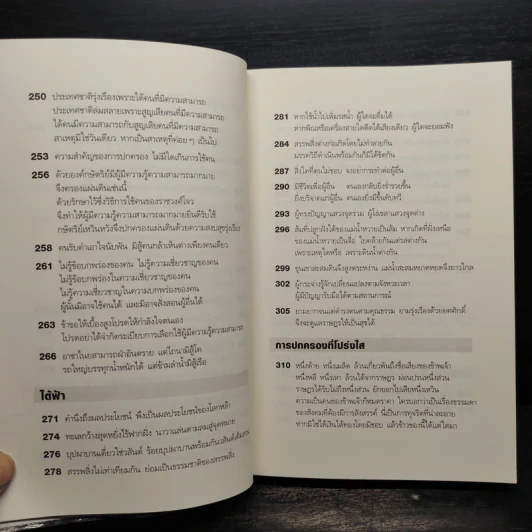 250 ประเทศชาติรุ่งเรืองเพราะได้คนที่มีความสามารถ
ประเทศชาติล่มสลายเพราะสูญเสียคนที่มีความสามารถ
ได้คนมีความสามารถกับสูญเสียคนที่มีความสามารถ
สาเหตุมิใช่วันเดียว หากเป็นสาเหตุที่ค่อยๆ เป็นไป
253 ความสำคัญของการปกครอง ไม่มีใดเกินการใช้คน
256 ด้วยองค์กษัตริย์ผู้มีความรู้ความสามารถมากมาย
จึงครองแผ่นดินเช่นนี้
ด้วยรักษาไว้ซึ่งวิธีการใช้คนของราชวงศ์โจว
จึงทำให้ผู้มีความรู้ความสามารถมากมายยินดีรับใช้
กษัตริย์เหวินหวังจึงปกครองแผ่นดินด้วยความสงบสุขรุ่งเรือง
258 คนรับคำเอาใจนับพัน มิสู้คนกล้าเห็นต่างเพียงคนเดียว
261 ไม่รู้ข้อบกพร่องของคน ไม่รู้ความเชี่ยวชาญของคน
ไม่รู้ข้อบกพร่องในความเชี่ยวชาญของคน
ไม่รู้ความเชี่ยวชาญในความบกพร่องของคน
ผู้นั้นมิอาจใช้คนได้ และมิอาจสั่งสอนผู้อื่นได้
263 ข้าขอให้เบื้องสูงโปรดให้กำลังใจตนเอง
โปรดอย่าได้จำกัดระเบียบการเลือกใช้ผู้มีความรู้ความสามารถ
266 อาชาในสามารถฝ่าอันตราย แต่ไถนามิสู้โค
รถใหญ่บรรทุกน้ำหนักได้ แต่ข้ามลำน้ำมิสู้เรือ
ใต้ฟ้า
271 คำนึงถึงผลประโยชน์ พึงเป็นผลประโยชน์ของโลกหล้า
274 ทะเลกว้างสุดหยั่งไร้ฟากฝั่ง นาวาแล่นตามลมสู่จุดหมาย
276 บุปผาบานเดี่ยวใช่วสันต์ ร้อยบุปผาบานพร้อมกันวสันต์เต็มสวน
278 สรรพสิ่งไม่เท่าเทียมกัน ย่อมเป็นธรรมชาติของสรรพสิ่ง
281 หากใช้น้ำไปเพิ่มรสน้ำ ผู้ใดจะดื่มได้
หากพิณหรือเครื่องสายใดดีดได้เสียงเดียว ผู้ใดจะยอมฟัง
284 สรรพสิ่งต่างก่อเกิดโดยไม่ทำลายกัน
มรรควิถีดำเนินพร้อมกันก็มิได้ขัดกัน
287 สิ่งใดที่ตนไม่ชอบ จงอย่ากระทำต่อผู้อื่น
290 มีชีวิตเพื่อผู้อื่น ตนเองกลับยิ่งร่ำรวยขึ้น
ยิ่งบริจาคแก่ผู้อื่น ตนเองยิ่งมีขึ้นทับทวี
293 ผู้ทรงปัญญาแสวงจุดร่วม ผู้โง่เขลาแสวงจุดต่าง
296
เพราะเหตุใดหรือ เพราะต้นน้ำต่างกัน
299
302 ผู้กระจ่างรู้จักเปลี่ยนแปลงตามจังหวะเวลา
ผู้มีปัญญารับมือได้ตามสถานการณ์
305 ยามยากจนแต่ดำรงตนตามคุณธรรม ยามรุ่งเรืองด้วยยศศักดิ์
จึงจะดูแลราษฎรให้เป็นสุขได้
การปกครองที่โปร่งใส
310 หนึ่งด้าย หนึ่งเมล็ด ล้วนเกี่ยวพันถึงชื่อเสียงของข้าพเจ้า
หนึ่งหลี หนึ่งเหา ล้วนได้จากราษฎร ผ่อนปรนหนึ่งส่วน
ราษฎรได้รับไม่ถึงหนึ่งส่วน ยักยอกไปเสียหนึ่งเหวิน
ความเป็นคนของข้าพเจ้าก็หมดราคา ใครบอกว่าเป็นเรื่องธรรมดา
ของสังคมที่ต้องมีการสังสรรค์ นี่เป็นการทุจริตที่น่าละอาย
หากมิใช่ได้เงินได้ทองโดยมิชอบ แล้วข้าวของนี้ได้แต่ใดมา